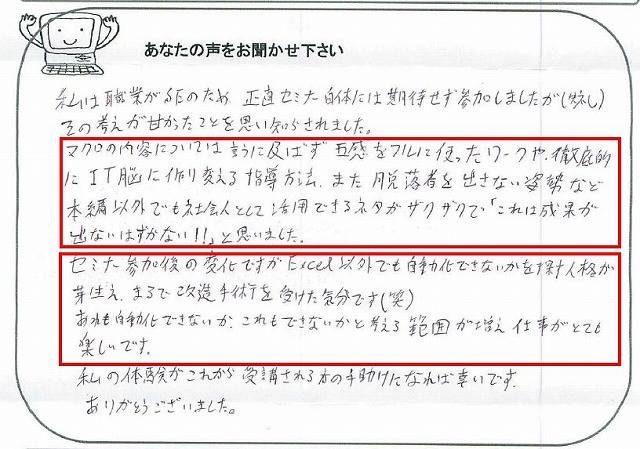 あなたの声をお聞かせ下さい
私は職業がSEのため、正直セミナー自体には期待せず参加しましたが(失礼)
その考えが甘かったことを思い知らされました。
マクロの内容については言うに及ばず五感をフルに使ったワークや、徹底的
にIT脳に作り変える指導方法、また脱落者を出さない姿勢など
本編以外でも社会人として活用できるネタがザクザクで、「これは成果が
出ないはずがない!!」と思いました。
セミナー参加後の変化ですがExcel以外でも自動化できないかを探す人格が
芽生え、まるで改造手術を受けた気分です(笑)
あれも自動化できないか、これもできないかと考える範囲が増え仕事がとても
楽しいです。
私の体験がこれから受講される方の手助けになれば幸いです。
ありがとうございました。